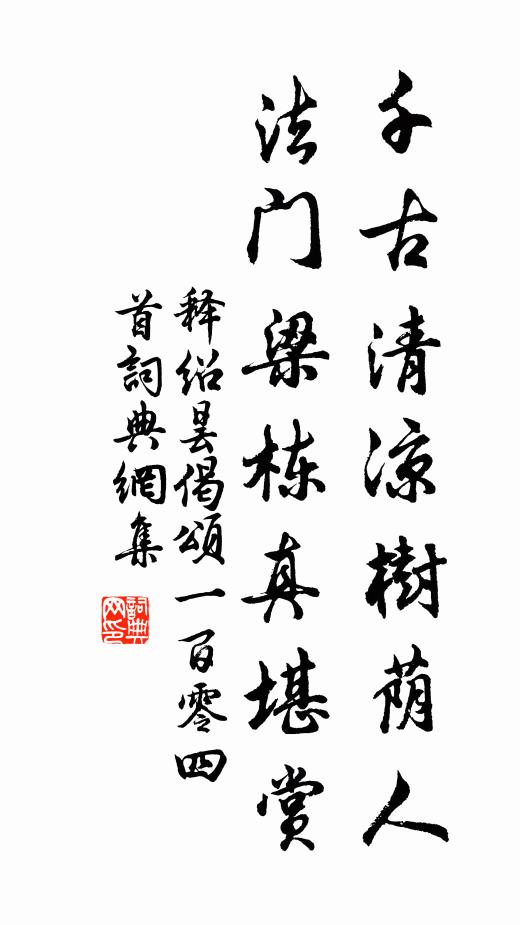 千古清凉樹荫人
法门梁栋真堪赏
释绍昙偈頌一百零四
首詞典網集
詞典网印